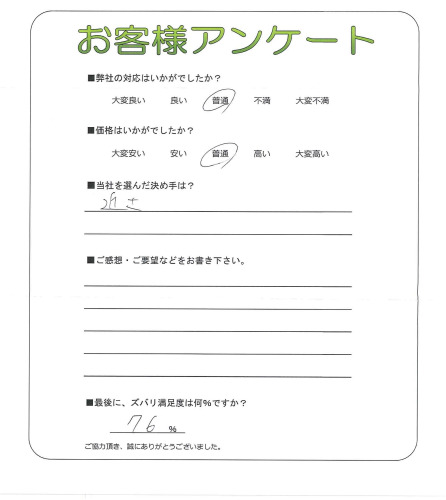 お客様アンケート
■弊社の対応はいかがでしたか？
大変良い 良い 普通 不満 大変不満
■価格はいかがでしたか？
大変安い 安い 普通 高い 大変高い
■当社を選んだ決め手は？
近さ
■ご感想・ご要望などをお書き下さい。
■最後に、ズバリ満足度は何%ですか？
76 %
ご協力頂き、誠にありがとうございました。